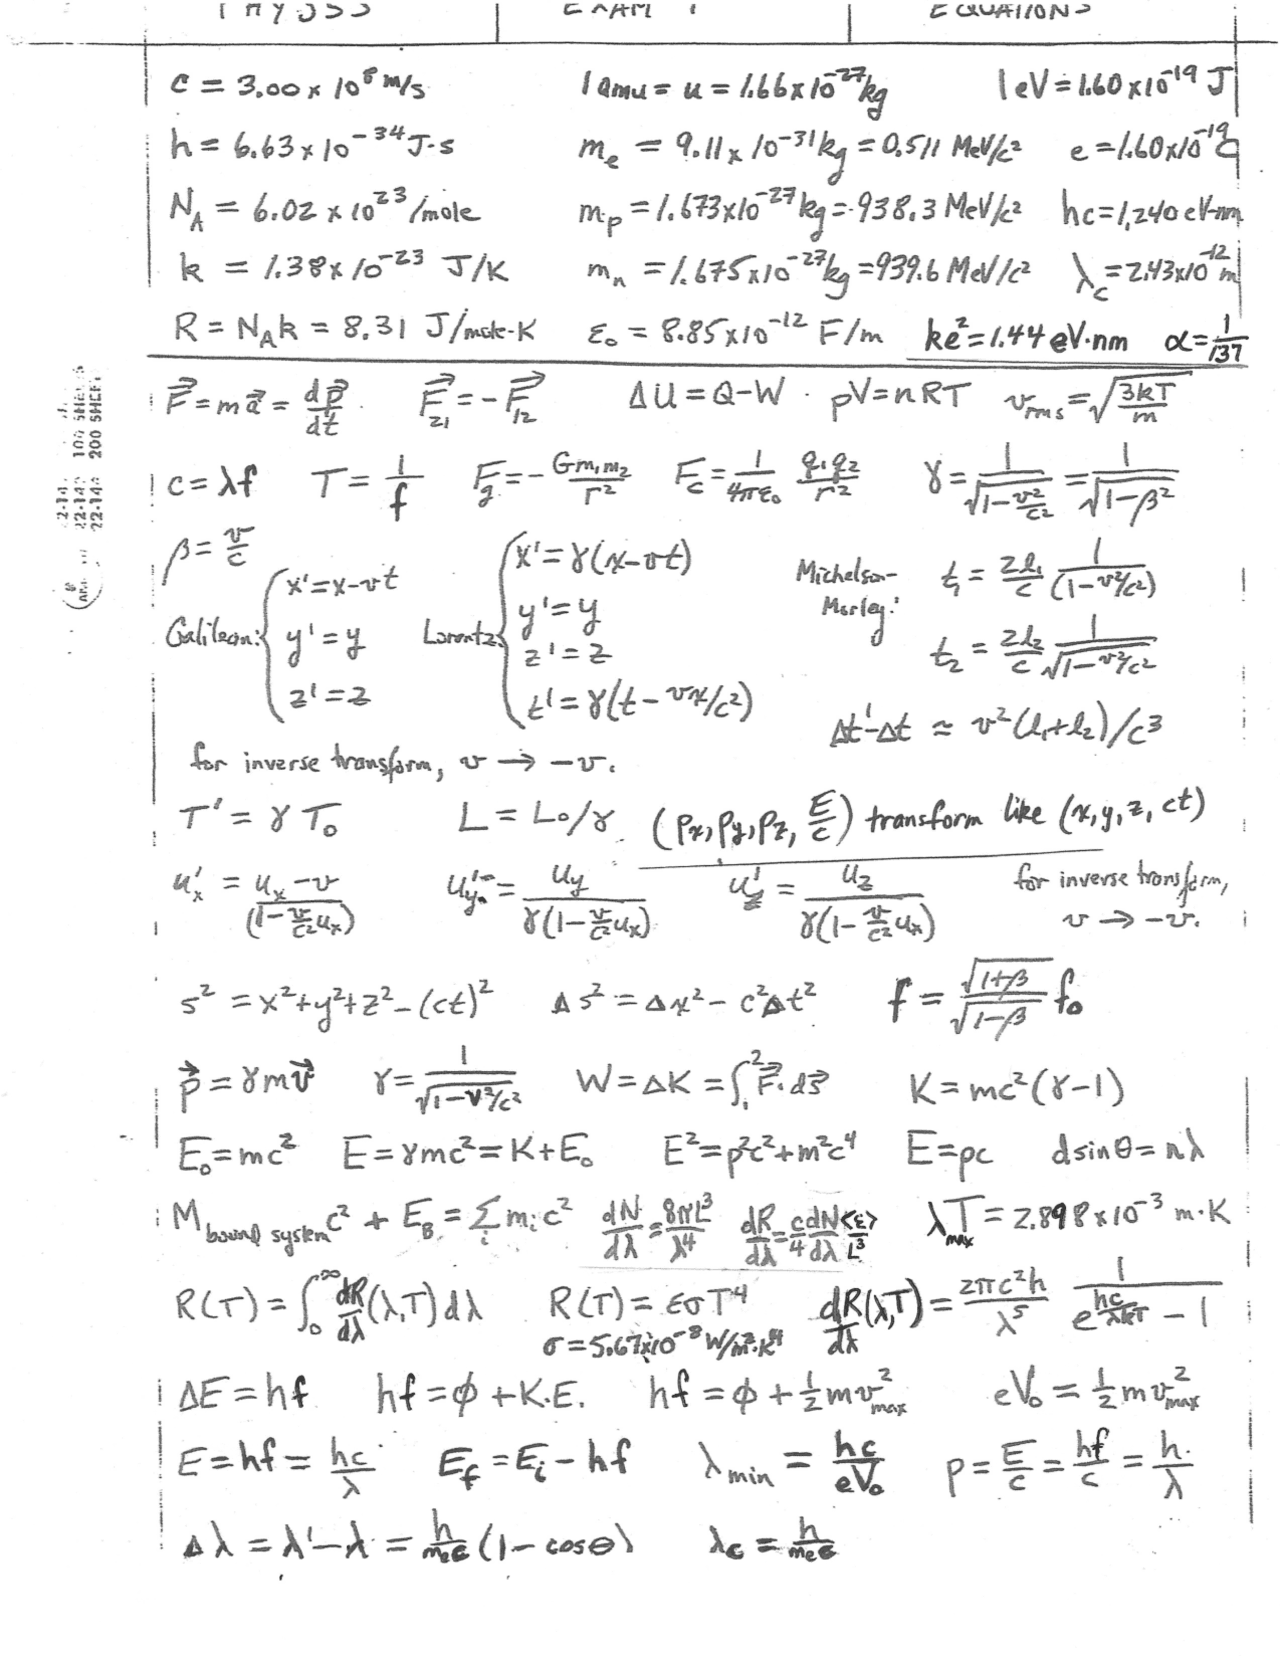 PHY 353 EXAM 1 EQUATIONS
c = 3.00 x 10⁸ m/s 1 amu = u = 1.66x10⁻²⁷ kg 1 eV = 1.60x10⁻¹⁹ J
h = 6.63 x 10⁻³⁴ J·s mₑ = 9.11x10⁻³¹ kg = 0.511 MeV/c² e = 1.60x10⁻¹⁹ C
N_A = 6.02 x 10²³/mole m_p = 1.673x10⁻²⁷ kg = 938.3 MeV/c² hc = 1,240 eV·nm
k = 1.38x10⁻²³ J/K m_n = 1.675x10⁻²⁷ kg = 939.6 MeV/c² λ_c = 2.43x10⁻¹² m
R = N_A k = 8.31 J/mole·K ε₀ = 8.85x10⁻¹² F/m ke² = 1.44 eV·nm α = 1/137
22-142 100 SHEETS
22-144 200 SHEETS
F⃗ = ma⃗ = dp⃗/dt F⃗₂₁ = -F⃗₁₂ ΔU = Q-W · pV = nRT v_rms = √(3kT/m)
c = λf T = 1/f F_g = -Gm₁m₂/r² F_c = 1/4πε₀ q₁q₂/r² γ = 1/√(1-v²/c²) = 1/√(1-β²)
β = v/c
Galilean: { x' = x-vt y' = y z' = z
Lorentz { x' = γ(x-vt) y' = y z' = z t' = γ(t-vx/c²)
Michelson-Morley: t₁ = 2l₁/c 1/(1-v²/c²)
t₂ = 2l₂/c 1/√(1-v²/c²)
Δt'-Δt ≈ v²(l₁+l₂)/c³
for inverse transform, v → -v.
T' = γT₀ L = L₀/γ (p_x, p_y, p_z, E/c) transform like (x, y, z, ct)
u_x' = (u_x-v)/(1-v/c² u_x) u_y' = u_y/γ(1-v/c² u_x) u_z' = u_z/γ(1-v/c² u_x) for inverse transform, v → -v.
s² = x²+y²+z²-(ct)² Δs² = Δx²-c²Δt² f = √(1+β)/√(1-β) f₀
p⃗ = γmv⃗ γ = 1/√(1-v²/c²) W = ΔK = ∫₁² F⃗·ds⃗ K = mc²(γ-1)
E₀ = mc² E = γmc² = K+E₀ E² = p²c²+m²c⁴ E = pc d sinθ = nλ
M_bound system c² + E_B = Σ_i m_i c² dN/dλ = 8πL³/λ⁴ dR/dλ = c/4 dN/dλ <ε>/L³ λ_max T = 2.898x10⁻³ m·K
R(T) = ∫₀^∞ dR/dλ (λ,T) dλ R(T) = εσT⁴ dR/dλ (λ,T) = 2πc²h/λ⁵ 1/(e^(hc/λkT) - 1)
σ = 5.67x10⁻⁸ W/m²·K⁴
ΔE = hf hf = ϕ + K.E. hf = ϕ + ½mv²_max eV₀ = ½mv²_max
E = hf = hc/λ E_f = E_i - hf λ_min = hc/eV₀ p = E/c = hf/c = h/λ
Δλ = λ'-λ = h/mₑc (1-cosθ) λ_c = h/mₑc